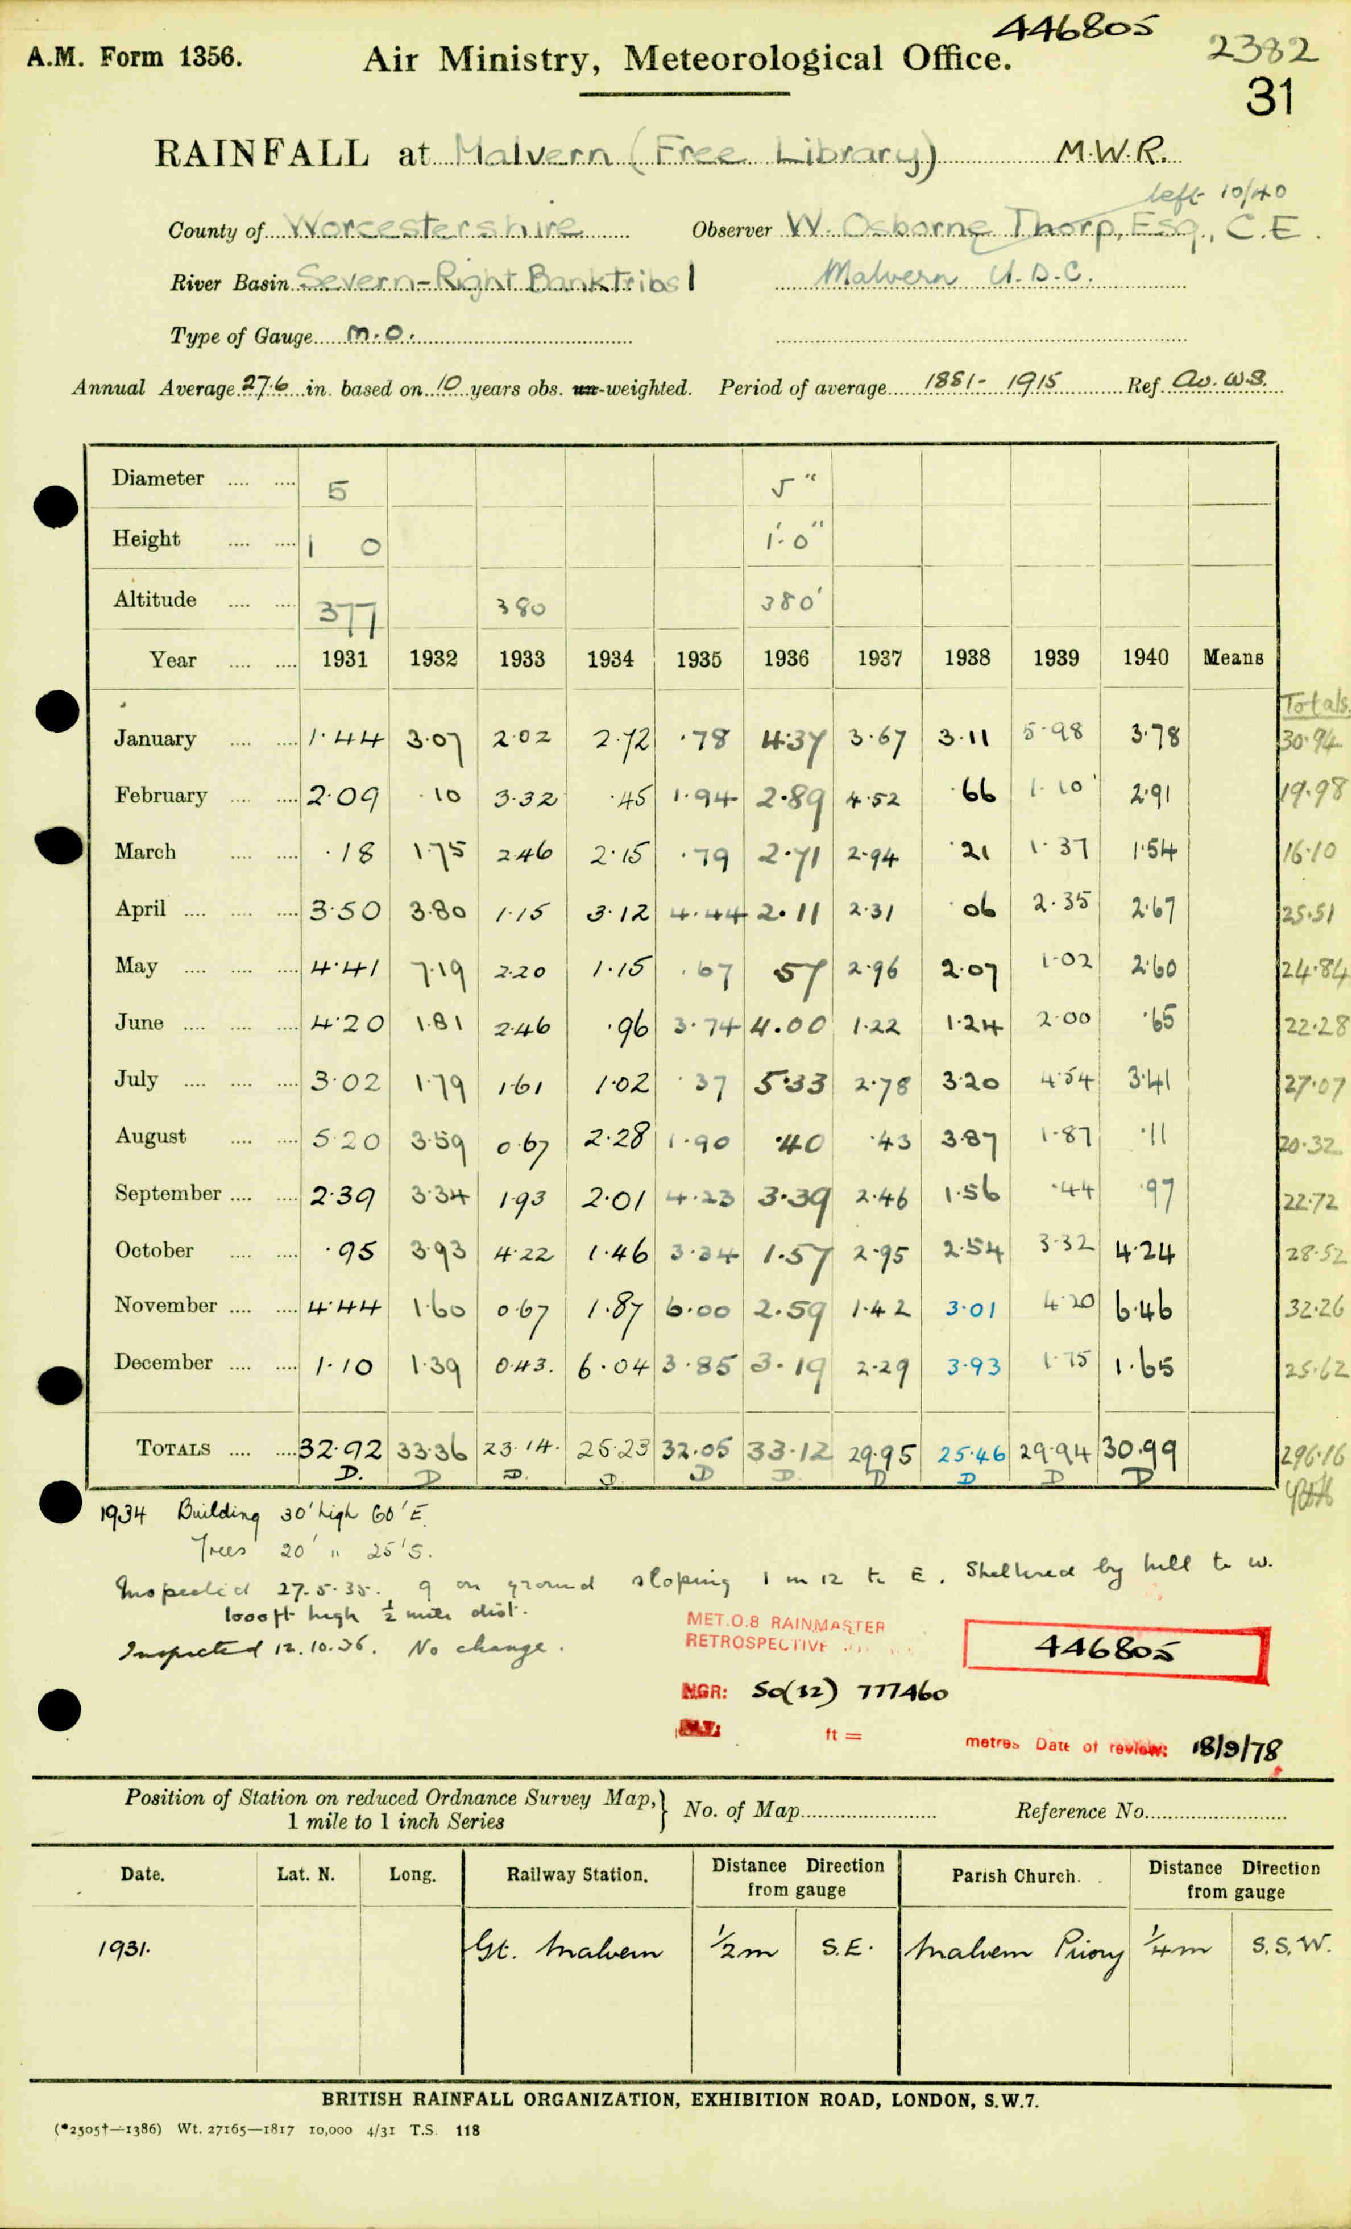 446805
A.M. Form 1356. Air Ministry, Meteorological Office. 2382
31
RAINFALL at Malvern (Free Library) M.W.R.
left 10/40
County of Worcestershire Observer W. Osborne Thorp, Esq., C.E.
River Basin Severn-Right Bank Tribs 1 Malvern U.D.C.
Type of Gauge M.O.
Annual Average 27.6 in. based on 10 years obs. un-weighted. Period of average 1881-1915 Ref. Av. W.S.
Diameter 5 5"
Height 1 0 1'-0"
Altitude 377 380 380'
Year 1931 1932 1933 1934 1935 1936 1937 1938 1939 1940 Means
Totals
January 1.44 3.07 2.02 2.72 .78 4.37 3.67 3.11 5.98 3.78 30.94
February 2.09 .10 3.32 .45 1.94 2.89 4.52 .66 1.10 2.91 19.98
March .18 1.75 2.46 2.15 .79 2.71 2.94 .21 1.37 1.54 16.10
April 3.50 3.80 1.15 3.12 4.44 2.11 2.31 .06 2.35 2.67 25.51
May 4.41 7.19 2.20 1.15 .67 .57 2.96 2.07 1.02 2.60 24.84
June 4.20 1.81 2.46 .96 3.74 4.00 1.22 1.24 2.00 .65 22.28
July 3.02 1.79 1.61 1.02 .37 5.33 2.78 3.20 4.54 3.41 27.07
August 5.20 3.59 0.67 2.28 1.90 .40 .43 3.87 1.87 .11 20.32
September 2.39 3.34 1.93 2.01 4.23 3.39 2.46 1.56 .44 .97 22.72
October .95 3.93 4.22 1.46 3.34 1.57 2.95 2.54 3.32 4.24 28.52
November 4.44 1.60 0.67 1.87 6.00 2.59 1.42 3.01 4.20 6.46 32.26
December 1.10 1.39 0.43. 6.04 3.85 3.19 2.29 3.93 1.75 1.65 25.62
TOTALS 32.92 33.36 23.14. 25.23 32.05 33.12 29.95 25.46 29.94 30.99 296.16
D. D D. D D D. D D D D
1934 Building 30' high 60' E.
Trees 20' " 25' S.
Inspected 27.5.35. g on ground sloping 1 in 12 to E. Sheltered by hill to W.
1000ft high ½ mile dist.
Inspected 12.10.36. No change.
MET.O.8 RAINMASTER
RETROSPECTIVE
446805
NGR: SO(32) 777460
ALT: ft = metres Date of review: 18/9/78
Position of Station on reduced Ordnance Survey Map,
1 mile to 1 inch Series } No. of Map Reference No.
Date. Lat. N. Long. Railway Station. Distance Direction from gauge Parish Church. Distance Direction from gauge
1931. Gt. Malvern ½ m S.E. Malvern Priory ¼ m S.S.W.
BRITISH RAINFALL ORGANIZATION, EXHIBITION ROAD, LONDON, S.W.7.
(*2505†—1386) Wt. 27165—1817 10,000 4/31 T.S. 118